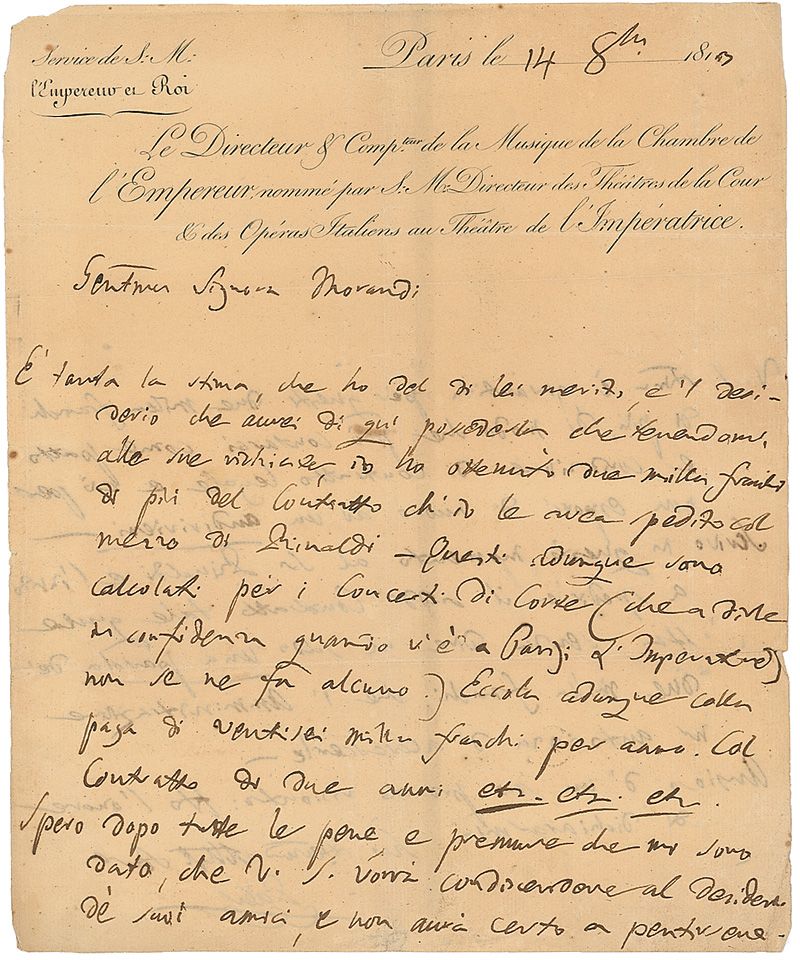 Service de S. M.
l'Empereur et Roi
Paris le 14 8bre 181
Le Directeur & Compteur de la Musique de la Chambre de
l'Empereur, nommé par S. M. Directeur des Théâtres de la Cour
& des Opéras Italiens au Théâtre de l'Impératrice.
Gentma Signora Morandi
E' tanta la stima, che ho del di lei merito, e 'l desi-
derio che aurei di qui possederla che
alle sue richieste, io ho ottenuto due milla franchi
di più del Contratto ch'io le avea pedito col
mezzo di Rinaldi – Questi adunque sono
calcolati per i Concerti di Corte (che a dirle
in confidenza quando vi è a Parigi L'Imperatore
non se ne fa alcuno.) Eccola adunque colla
paga di ventisei milla franchi per anno. Col
Contratto di due anni etc. etc. etc.
Spero dopo tutte le pene e premure che mi sono
dato, che V. S. vorrà condiscendere al desiderio
de' suoi amici, e non aurà certo a pentirsene.